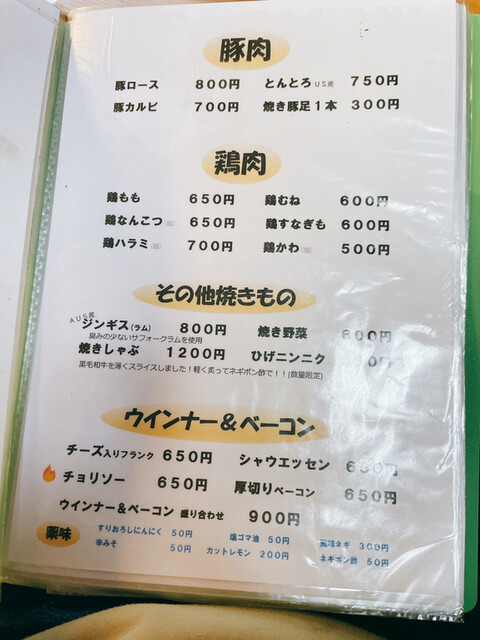 豚肉
豚ロース 800円 とんとろ US産 750円
豚カルビ 700円 焼き豚足1本 300円
鶏肉
鶏もも 650円 鶏むね 600円
鶏なんこつ(塩) 650円 鶏すなぎも 600円
鶏ハラミ(塩) 700円 鶏かわ(塩) 500円
その他焼きもの
AUS産
ジンギス(ラム) 800円 焼き野菜 600円
臭みの少ないサフォークラムを使用
焼きしゃぶ 1200円 ひげニンニク 0円
黒毛和牛を薄くスライスしました!軽く炙ってネギポン酢で!!(数量限定)
ウインナー&ベーコン
チーズ入りフランク 650円 シャウエッセン 650円
チョリソー 650円 厚切りベーコン 650円
ウインナー&ベーコン 盛り合わせ 900円
薬味
すりおろしにんにく 50円 塩ゴマ油 50円 風味ネギ 300円
辛みそ 50円 カットレモン 200円 ネギポン酢 50円